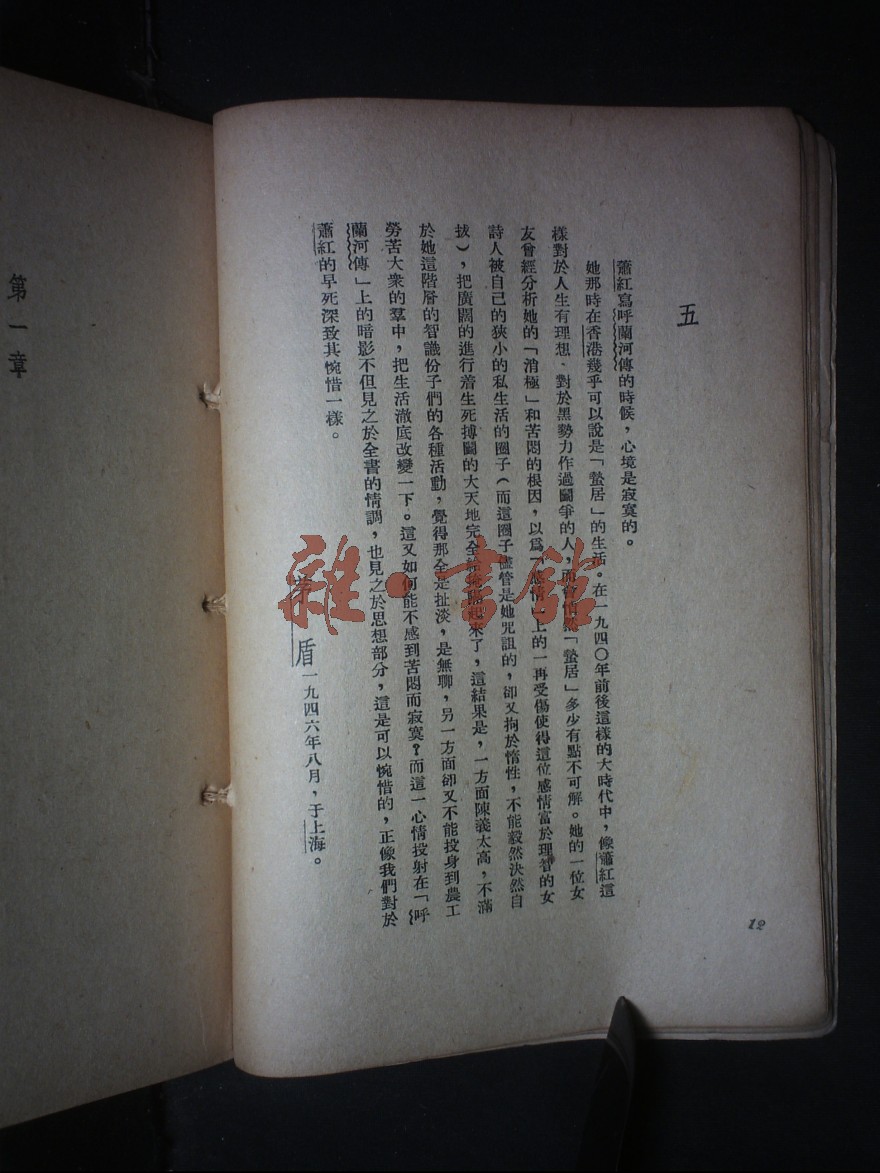 五
蕭紅寫呼蘭河傳的時候，心境是寂寞的。
她那時在香港幾乎可以說是「蟄居」的生活。在一九四〇年前後這樣的大時代中，像蕭紅這
樣對於人生有理想，對於黑勢力作過鬬爭的人，而會悄然「蟄居」多少有點不可解。她的一位女
友曾經分析她的「消極」和苦悶的根因，以爲「感情」上的一再受傷使得這位感情富於理智的女
詩人被自己的狹小的私生活的圈子（而這圈子儘管是她咒詛的，卻又拘於惰性，不能毅然決然自
拔），把廣闊的進行着生死搏鬬的大天地完全給隔起來了，這結果是，一方面陳義太高，不滿
於她這階層的智識份子們的各種活動，覺得那全是扯淡，是無聊，另一方面卻又不能投身到農工
勞苦大衆的羣中，把生活澈底改變一下。這又如何能不感到苦悶而寂寞？而這一心情投射在「呼
蘭河傳」上的暗影不但見之於全書的情調，也見之於思想部分，這是可以惋惜的，正像我們對於
蕭紅的早死深致其惋惜一樣。
茅　盾一九四六年八月，于上海。
12
第一章
雜·書館